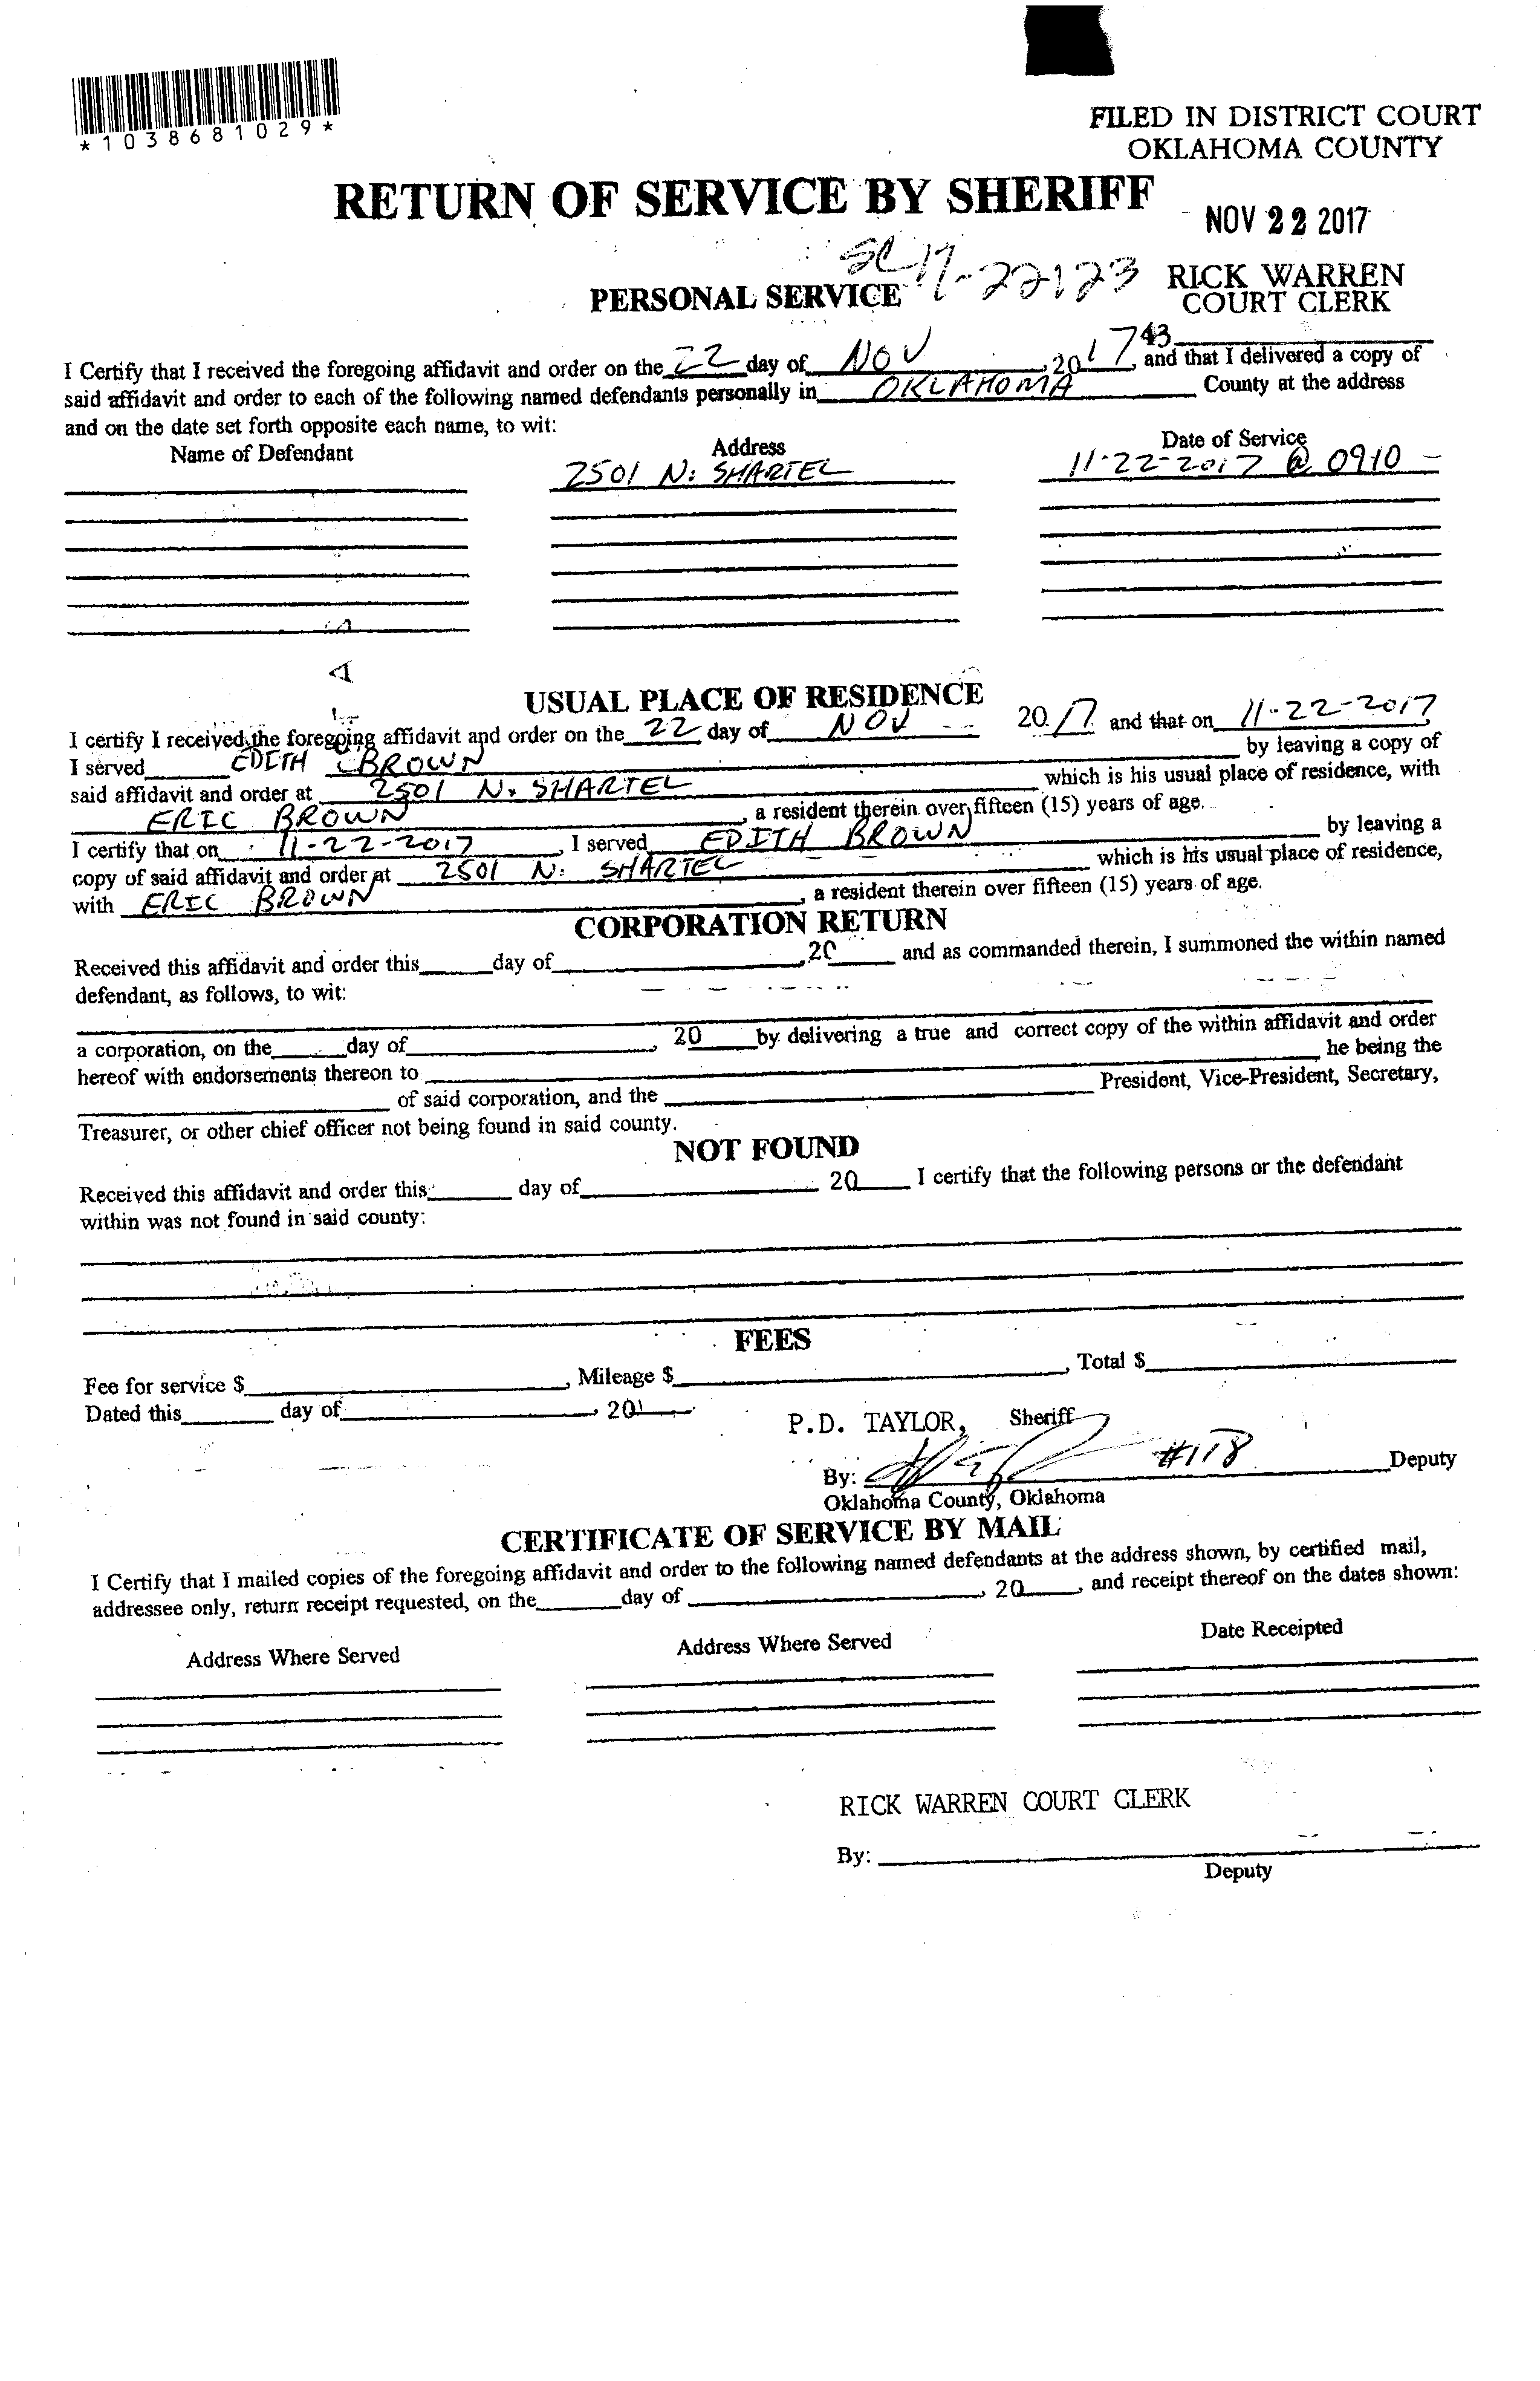 *1038681029*
FILED IN DISTRICT COURT
OKLAHOMA COUNTY
RETURN OF SERVICE BY SHERIFF
NOV 22 2017
SC17-22123
RICK WARREN
COURT CLERK
PERSONAL SERVICE
43
I Certify that I received the foregoing affidavit and order on the 22 day of NOV, 2017, and that I delivered a copy of
said affidavit and order to each of the following named defendants personally in OKLAHOMA County at the address
and on the date set forth opposite each name, to wit:
Name of Defendant Address Date of Service
2501 N. SHARTEL 11-22-2017 @ 0910
USUAL PLACE OF RESIDENCE
I certify I received the foregoing affidavit and order on the 22 day of NOV 2017 and that on 11-22-2017
I served EDITH BROWN by leaving a copy of
said affidavit and order at 2501 N. SHARTEL which is his usual place of residence, with
ERIC BROWN, a resident therein over fifteen (15) years of age.
I certify that on 11-22-2017, I served EDITH BROWN by leaving a
copy of said affidavit and order at 2501 N. SHARTEL which is his usual place of residence,
with ERIC BROWN, a resident therein over fifteen (15) years of age.
CORPORATION RETURN
Received this affidavit and order this day of , 20 and as commanded therein, I summoned the within named
defendant, as follows, to wit:
a corporation, on the day of , 20 by delivering a true and correct copy of the within affidavit and order
hereof with endorsements thereon to he being the
of said corporation, and the President, Vice-President, Secretary,
Treasurer, or other chief officer not being found in said county.
NOT FOUND
Received this affidavit and order this day of 20 I certify that the following persons or the defendant
within was not found in said county:
FEES
Fee for service $ , Mileage $ , Total $
Dated this day of , 20
P.D. TAYLOR, Sheriff
By: #118 Deputy
Oklahoma County, Oklahoma
CERTIFICATE OF SERVICE BY MAIL
I Certify that I mailed copies of the foregoing affidavit and order to the following named defendants at the address shown, by certified mail,
addressee only, return receipt requested, on the day of , 20 , and receipt thereof on the dates shown:
Address Where Served Address Where Served Date Receipted
RICK WARREN COURT CLERK
By:
Deputy